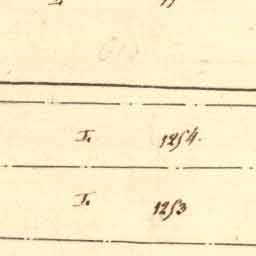 I. 1254.
I. 1253